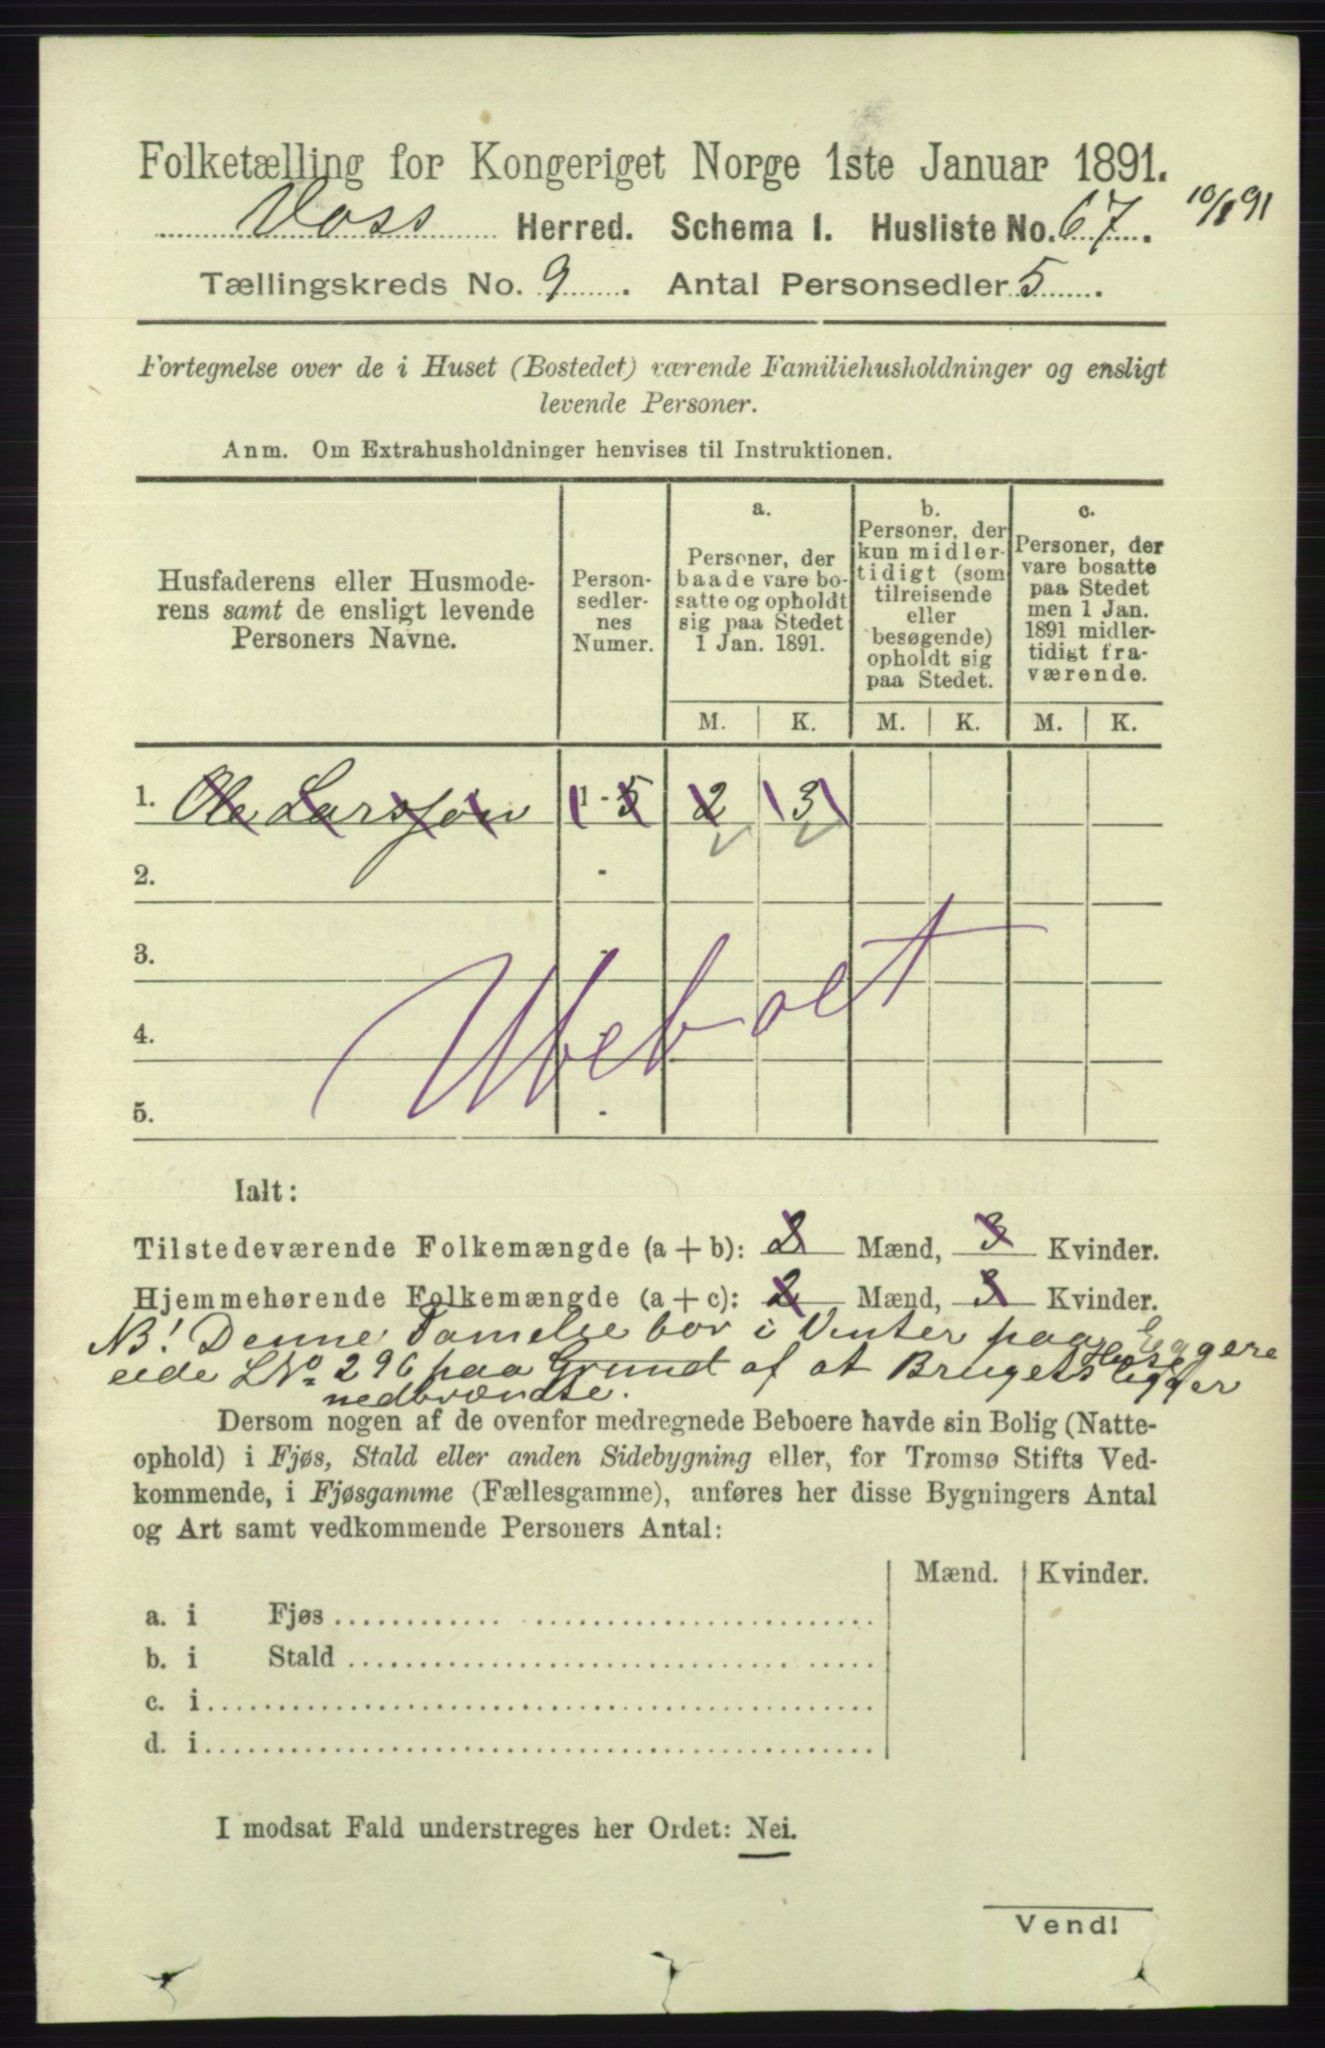 Folketælling for Kongeriget Norge 1ste Januar 1891.
Voss Herred. Schema I. Husliste No. 67. 10/1 91
Tællingskreds No. 9. Antal Personsedler 5.
Fortegnelse over de i Huset (Bostedet) værende Familiehusholdninger og ensligt
levende Personer.
Anm. Om Extrahusholdninger henvises til Instruktionen.
Husfaderens eller Husmode-
rens samt de ensligt levende
Personers Navne.
Person-
sedler-
nes
Numer.
a.
Personer, der
baade vare bo-
satte og opholdt
sig paa Stedet
1 Jan. 1891.
b.
Personer, der
kun midler-
tidigt (som
tilreisende
eller
besøgende)
opholdt sig
paa Stedet.
c.
Personer, der
vare bosatte
paa Stedet
men 1 Jan.
1891 midler-
tidigt fra-
værende.
M. K. M. K. M. K.
1. Ole Larssøn 1 - 5 2 3
2. -
3. -
4.
5. -
Ubeboet
Ialt:
Tilstedeværende Folkemængde (a + b): 2 Mænd, 3 Kvinder.
Hjemmehørende Folkemængde (a + c): 2 Mænd, 3 Kvinder.
NB! Denne Famelse bor i Vinter paa
eide LNo 296 paa Grund af at Brugets Huse ligger
nedbrændte.
Dersom nogen af de ovenfor medregnede Beboere havde sin Bolig (Natte-
ophold) i Fjøs, Stald eller anden Sidebygning eller, for Tromsø Stifts Ved-
kommende, i Fjøsgamme (Fællesgamme), anføres her disse Bygningers Antal
og Art samt vedkommende Personers Antal:
Mænd. Kvinder.
a. i Fjøs
b. i Stald
c. i
d. i
I modsat Fald understreges her Ordet: Nei.
Vend!